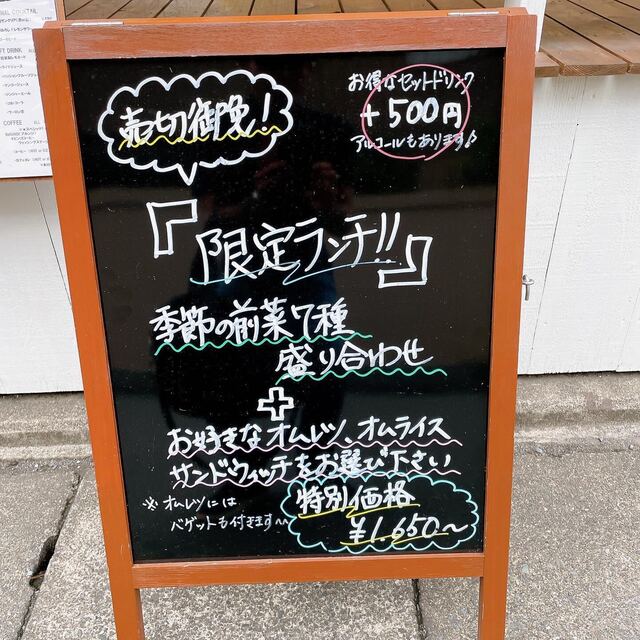 売切御免！
お得なセットドリンク
+500円
アルコールもあります♪
『限定ランチ!!』
季節の前菜7種
盛り合わせ
+
お好きなオムレツ、オムライス
サンドウィッチをお選び下さい
※オムレツには
バゲットも付きます〜
特別価格
¥1.650〜
COCKTAIL
DRINK
COFFEE